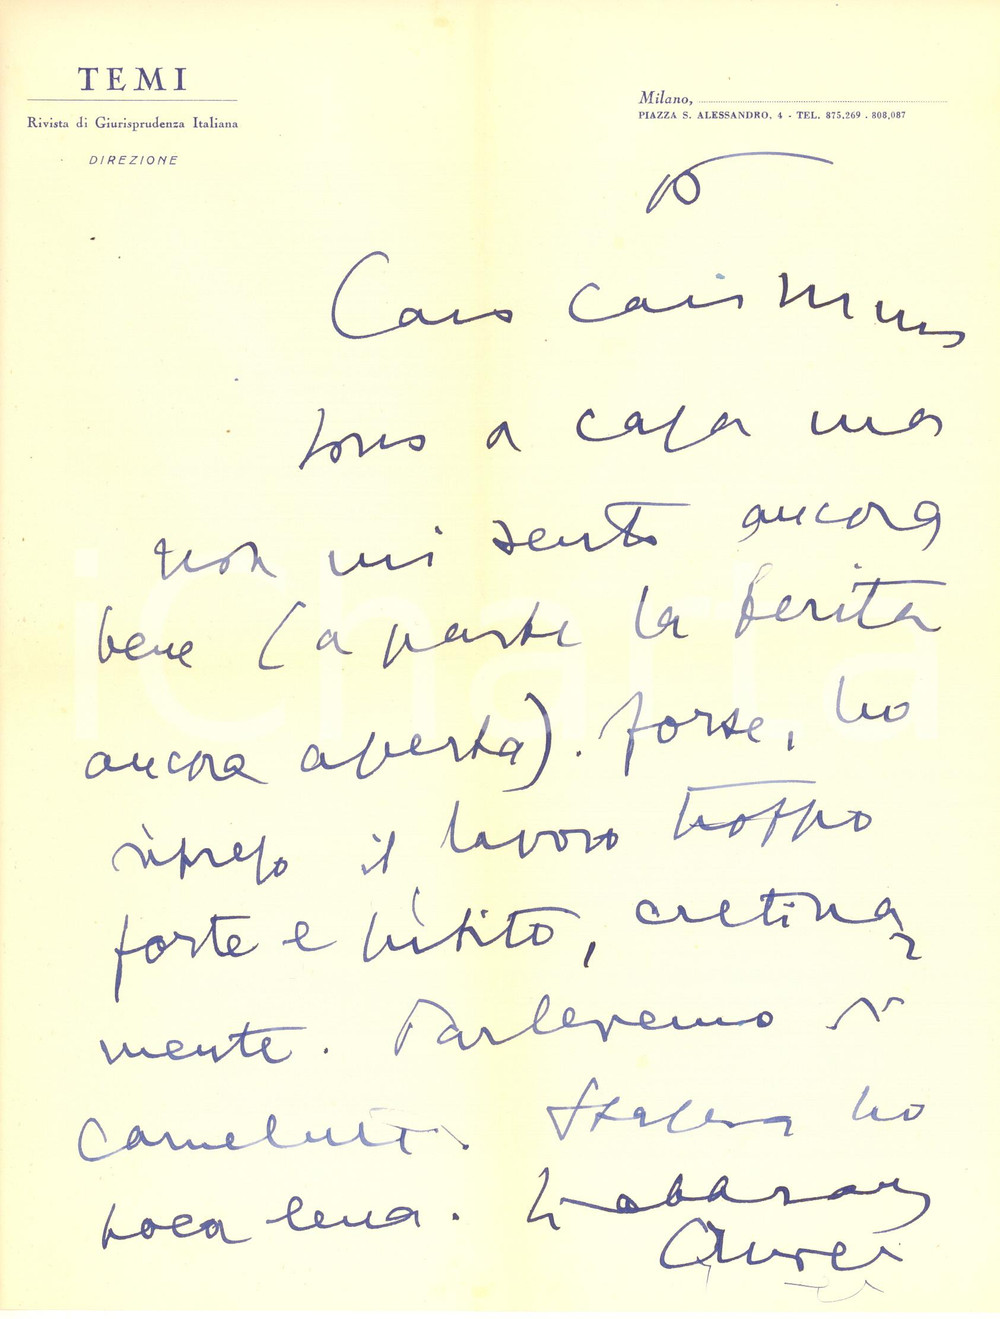 TEMI
Rivista di Giurisprudenza Italiana
DIREZIONE
Milano,
PIAZZA S. ALESSANDRO, 4 - TEL. 875.269 . 808,087
Caro carissimo
sono a casa ma
non mi sento ancora
bene (a parte la ferita
ancora aperta). forse, ho
ripreso il lavoro troppo
forte e subito, cretina
mente. Parleremo di
Carnelutti. Stasera ho
poca lena.
iCharta